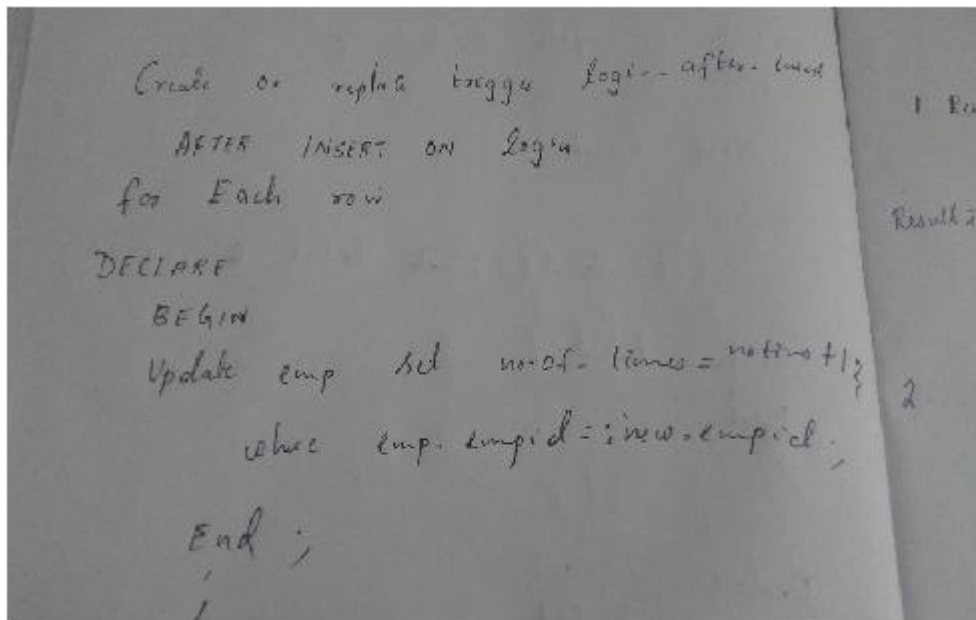 Create or replace trigger login-after-insert
AFTER INSERT ON login
for Each row
DECLARE
BEGIN
Update emp set no-of-times = notimes+1;
where emp.empid=:new.empid;
End;
/
1
Result
2